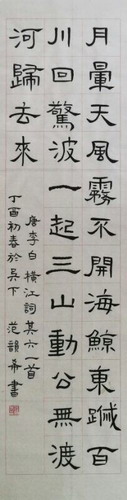 月暈天風霧不開海鯨東蹴百
川回驚波一起三山動公無渡
河歸去來
唐李白橫江詞其六一首
丁酉初春於吳下 范韻希書